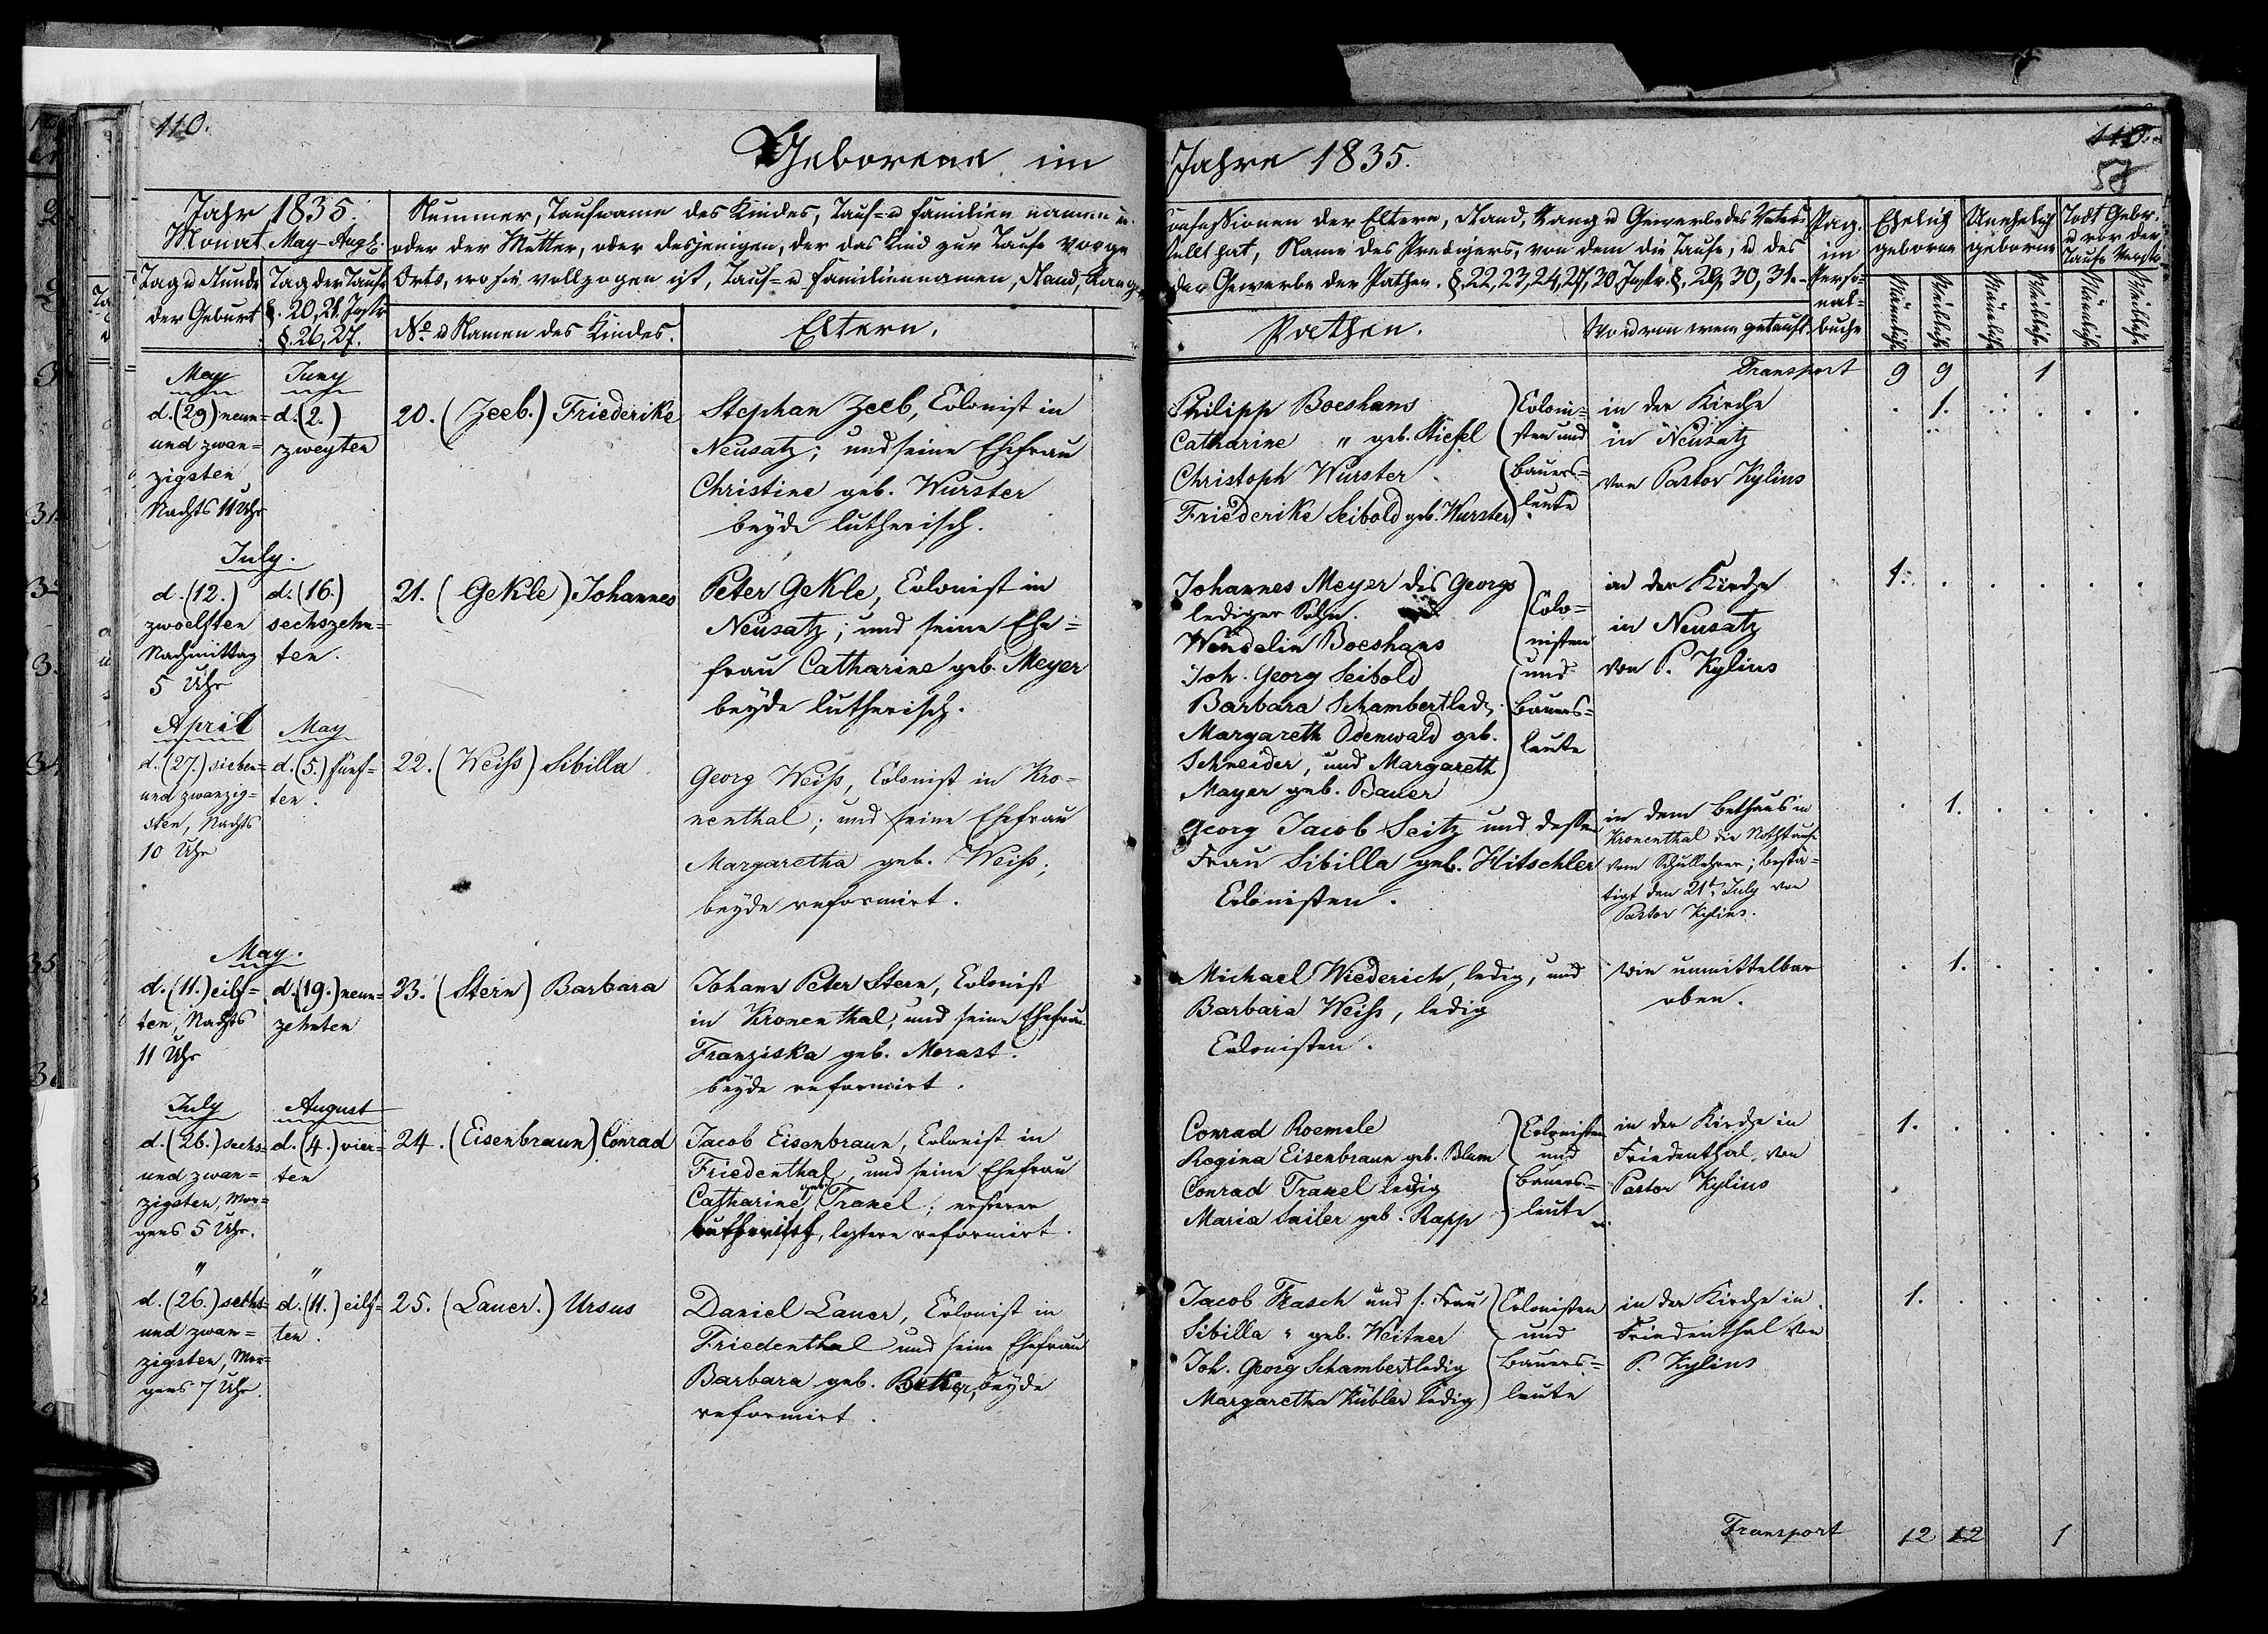 110.
Geborene im
Jahr 1835.
Monat May–Augt.
Nummer, Taufname des Kindes, Tauf- u Familien namen u.
oder der Mutter, oder desjenigen, der das Kind zur Taufe vorge
Orts, wo sie vollzogen ist, Tauf- u Familiennamen, Stand, Rang
Tag u Stunde
der Geburt
Tag der Taufe
§. 20, 21. Instr
§. 26, 27.
No. u Namen des Kindes.
Eltern.
May
d. (29) neun=
und zwan=
zigsten
Nachts 11 Uhr
Juny
d. (2.)
zweyten
20. (Zeeb.) Friederike
Stephan Zeeb, Colonist in
Neusatz; und seine Ehefrau
Christine geb. Wurster
beyde lutherisch.
July.
d. (12.)
zwoelften
Nachmittag
5 Uhr
d. (16.)
sechszehn=
ten.
21. (Gekle) Johannes
Peter Gekle, Colonist in
Neusatz; und seine Ehe=
frau Catharine geb. Meyer
beyde lutherisch.
April
d. (27.) sieben=
und zwanzig=
sten, Nachts
10 Uhr
May
d. (5.) fünf=
ten.
22. (Weiss) Sibilla
Georg Weiss, Colonist in Kro=
nenthal; und seine Ehefrau
Margaretha geb. Weiss;
beyde reformirt.
May.
d. (11.) eilf=
ten, Nachts
11 Uhr
d. (19.) neun=
zehnten
23. (Stern) Barbara
Johann Peter Stern, Colonist
in Kronenthal, und seine Ehefrau
Franziska geb. Morast.
beyde reformirt.
July
d. (26.) sechs=
und zwan=
zigsten, Mor=
gens 5 Uhr.
August
d. (4.) vier=
ten
24. (Eisenbraun) Conrad
Jacob Eisenbraun, Colonist in
Friedenthal, und seine Ehefrau
Catharine geb. Traxel; ersterer
lutherisch, leztere reformirt.
"
d. (26.) sechs=
und zwan=
zigsten, Mor=
gens 7 Uhr.
"
d. (11.) eilf=
ten.
25. (Lauer.) Ursus
Daniel Lauer, Colonist in
Friedenthal und seine Ehefrau
Barbara geb. beyde
reformirt.
Jahre 1835.
110.
58
Confessionen der Eltern, Stand, Rang u Gewerbe des Vaters
stellt hat, Name des Predigers, von dem die Taufe, u des
der Gewerbe der Pathen. §. 22, 23, 24, 27, 30. Instr. §. 29, 30, 31.
Pathen.
Wo u von wem getauft.
Pag.
im
Perso=
nal=
buche
Ehelich
geborne
Unehelich
geborne
Todt Gebor.
u vor der
Taufe Verstr.
Männlich
Weiblich
Männlich
Weiblich
Männlich
Weiblich
Transport 9 9 1
Philipp Boeshans
Catharine " geb. Stiefel
Christoph Wurster
Friederike Seibold geb. Wurster
Coloni=
sten und
Bauers=
leute
in der Kirche
in Neusatz
von Pastor Kylius
1.
Johannes Meyer des Georgs
lediger Sohn.
Wendelin Boeshans
Joh. Georg Seibold
Barbara Schambert led.
Margareth Odenwald geb.
Schneider, und Margareth
Mayer geb. Bauer
Colo=
nisten
und
Bauers=
leute
in der Kirche
in Neusatz
von P. Kylius
1.
Georg Jacob Seitz und dessen
Frau Sibilla geb. Hitschler
Colonisten.
in dem Bethaus in
Kronenthal die Nothtaufe
vom Schullehrer; bestä=
tigt den 21t. July von
Pastor Kylius.
1.
Michael Wiederich, ledig, und
Barbara Weiss, ledig
Colonisten.
wie unmittelbar
oben.
1.
Conrad Roemele
Regina Eisenbraun geb. Blum
Conrad Traxel ledig
Maria Sailer geb. Rapp
Colonisten
und
Bauers=
leute
in der Kirche in
Friedenthal, von
Pastor Kylius
1.
Jacob Frasch und s. Frau
Sibilla " geb. Weitner
Joh. Georg Schambert ledig
Margaretha Kübler ledig
Colonisten
und
Bauers=
leute
in der Kirche in
Friedenthal von
P. Kylius
1.
Transport 12 12 1